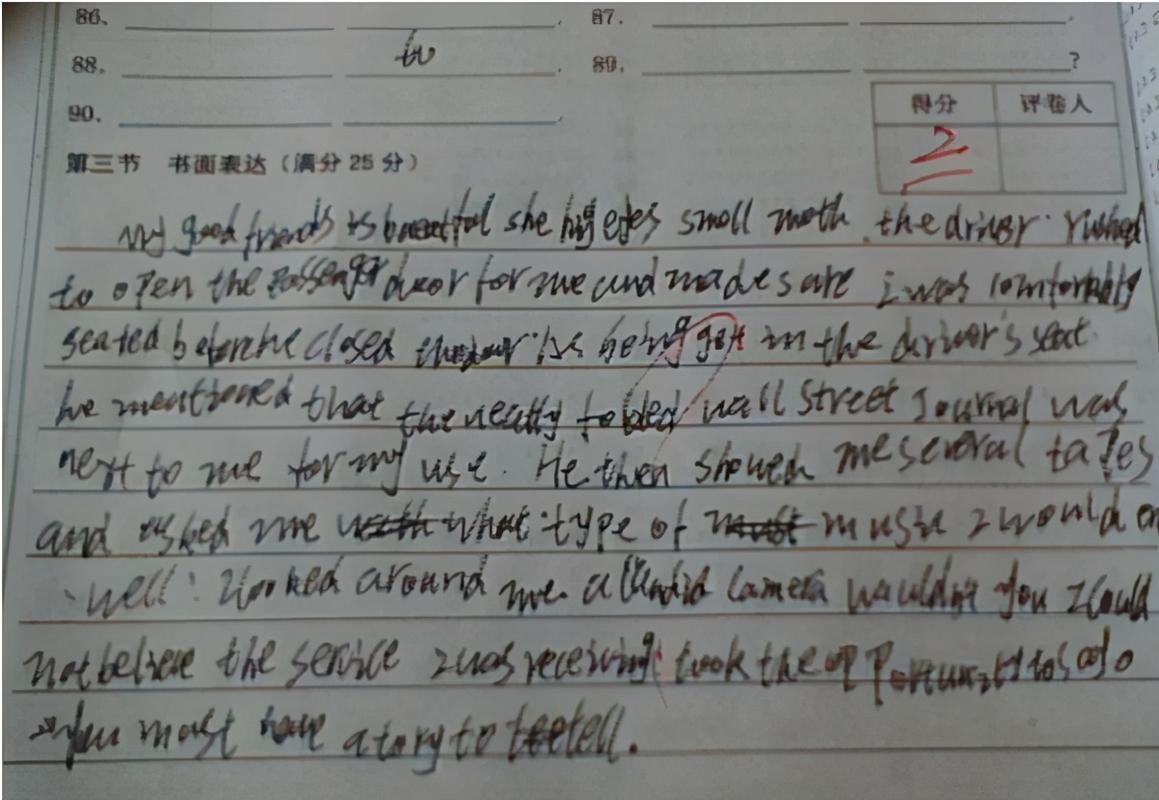 86、 . 87. .
88. to . 89. ?
90、 .
得分 评卷人
2
第三节 书面表达（满分 25 分）
my good friends is she big eyes small moth .the driver rushed
to open the passenger door for me and made sare i was comfortably
seated before he closed in the driver's seat.
he mentioned that the neatly folded wall Street Journal was
next to me for my use. He then showed me several tapes
and asked me what type of music I would
well! I looked around me. a Candid Camera wouldn't you I could
not believe the service I was receiving took the
you must have a tory to tell.